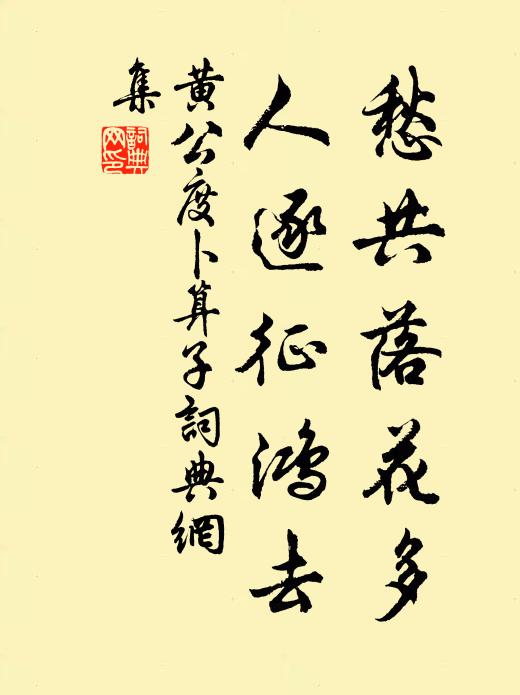 愁共落花多
人逐征鴻去
黄公度卜算子詞典網
集
詞典网印